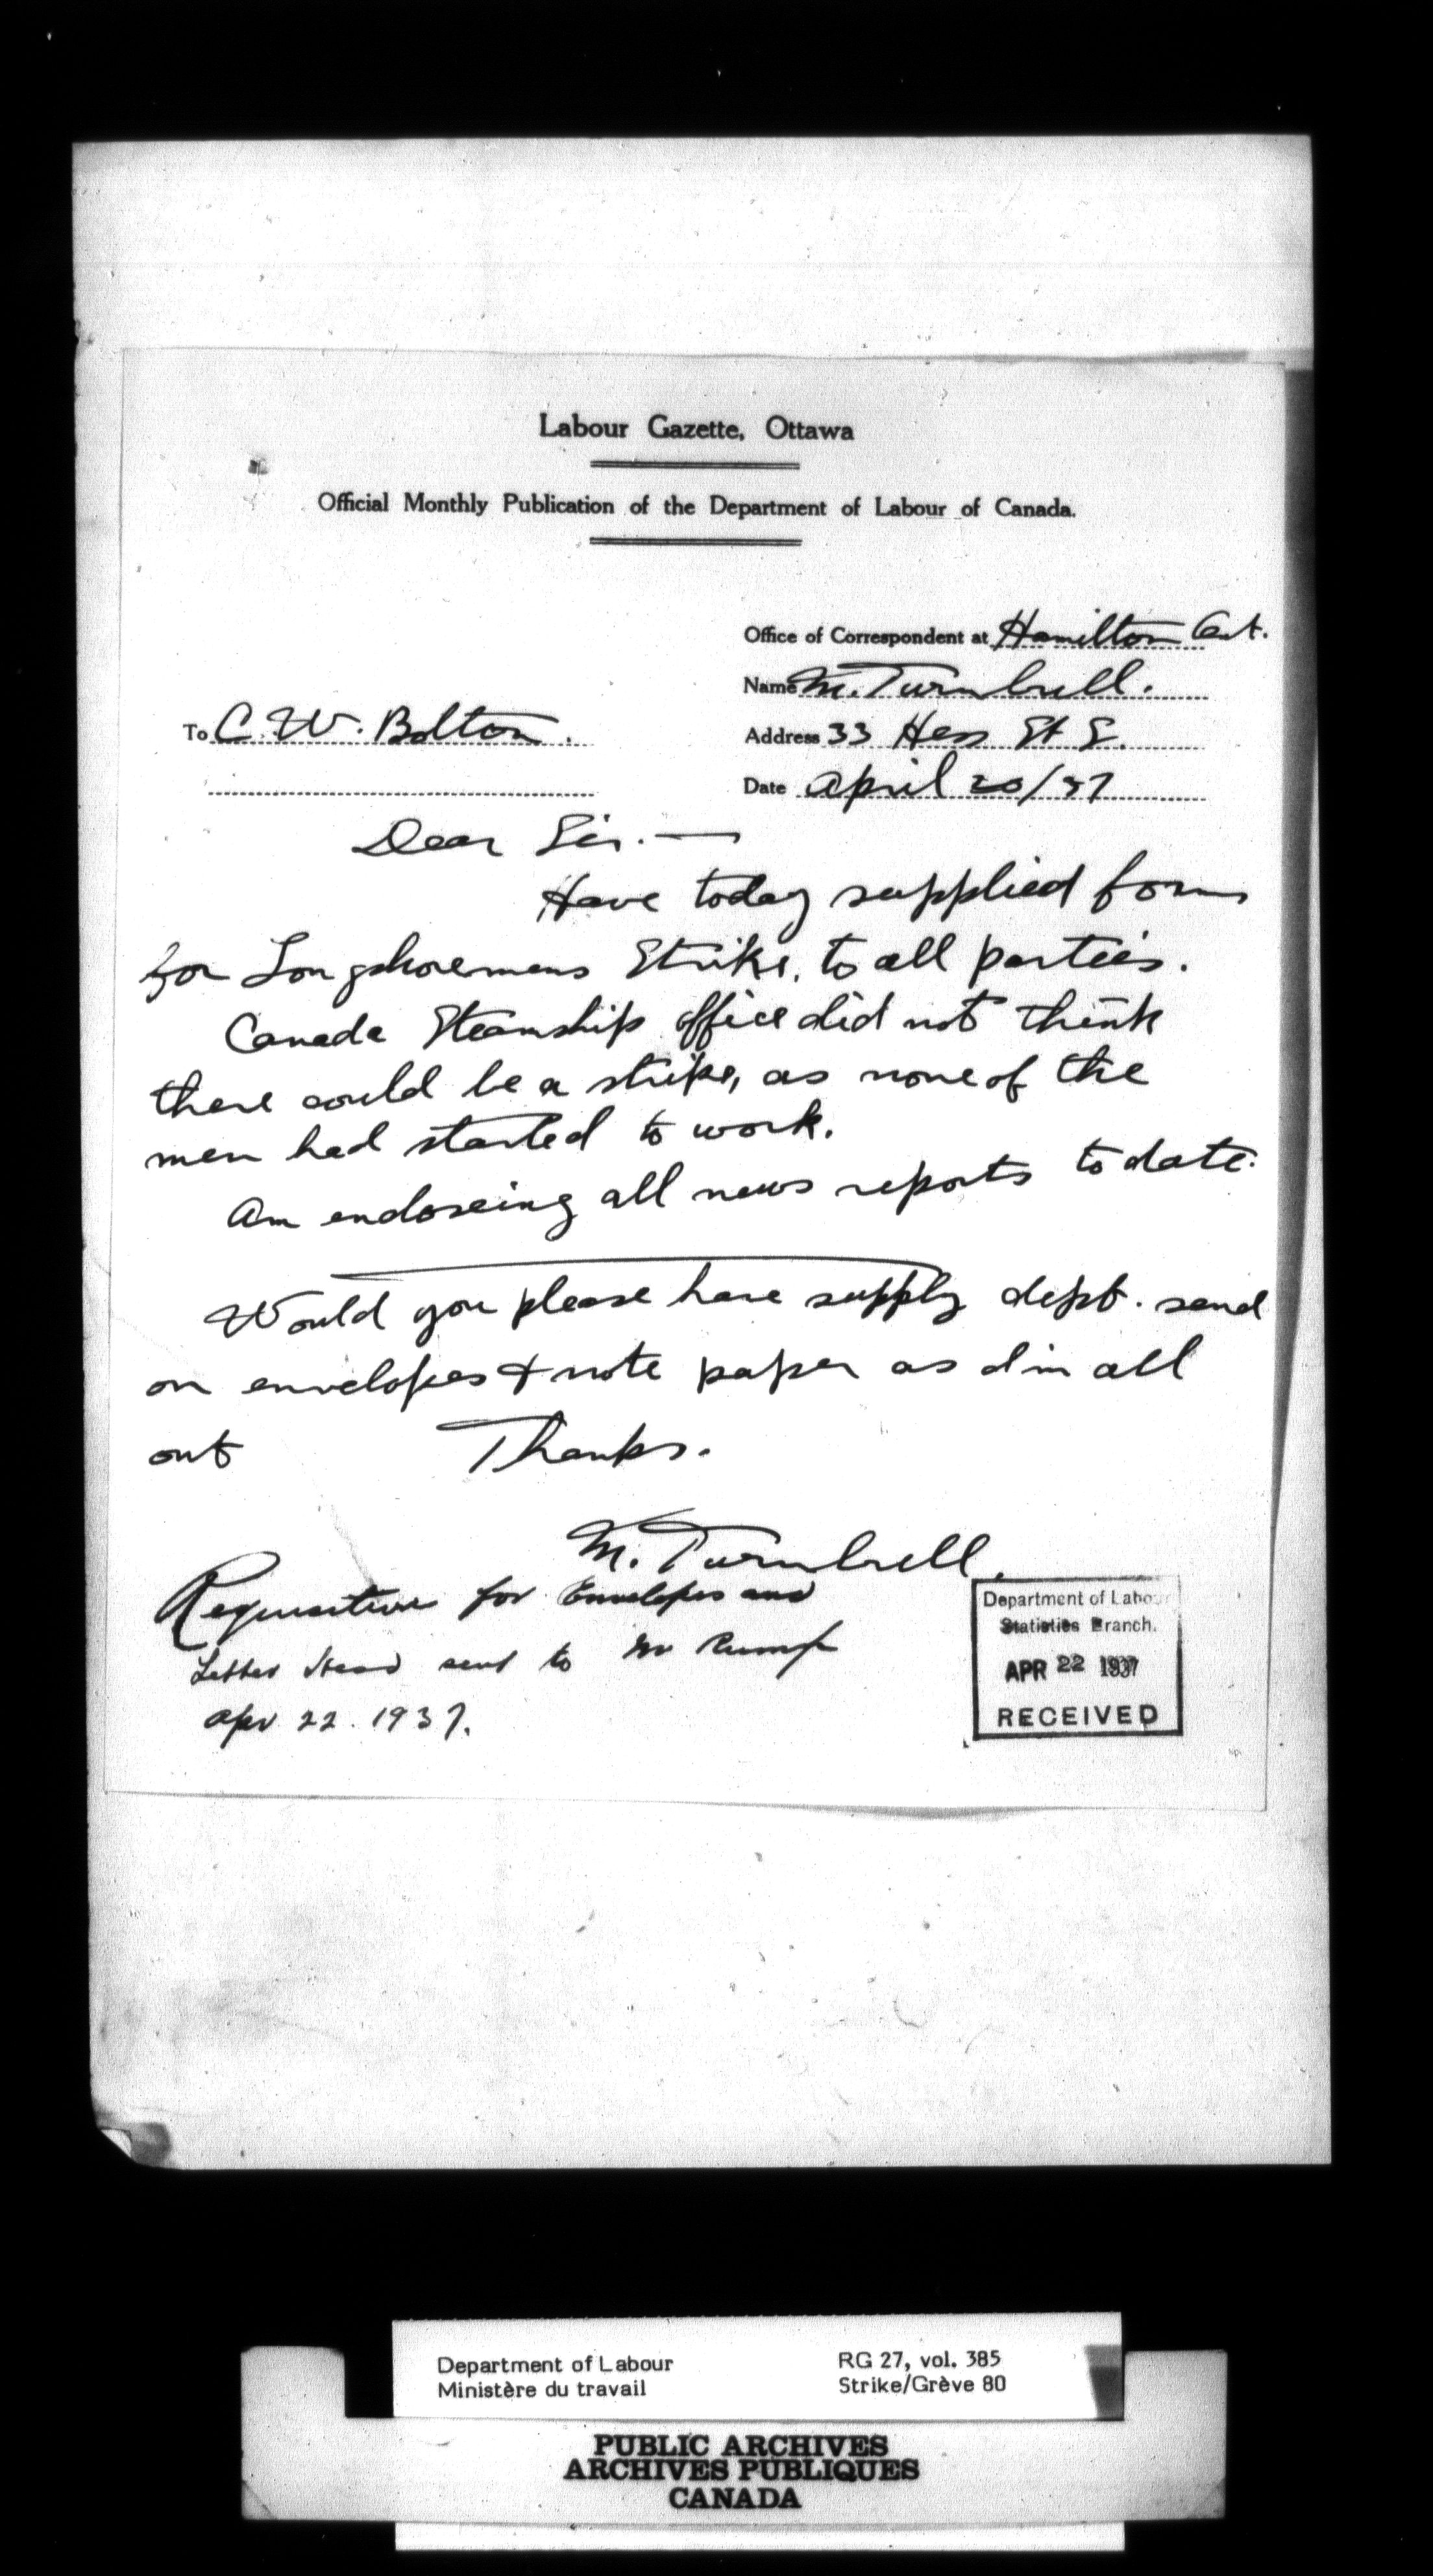 Labour Gazette, Ottawa
Official Monthly Publication of the Department of Labour of Canada.
Office of Correspondent at Hamilton Ont.
Name M. Turnbull.
To C. W. Bolton.
Address 33 Hess St S.
Date April 20/37
Dear Sir. —
Have today supplied forms
for Longshoremens Strike, to all parties.
Canada Steamship office did not think
there could be a strike, as none of the
men had started to work.
Am encloseing all news reports to date.
Would you please have supply dept. send
on envelopes & note paper as I'm all
out Thanks.
M. Turnbull.
Requisition for Envelopes and
Letter Head sent to Mr
Apr 22. 1937.
Department of Labour
Statistics Branch.
APR 22 1937
RECEIVED
Department of Labour
Ministère du travail
RG 27, vol. 385
Strike/Grève 80
PUBLIC ARCHIVES
ARCHIVES PUBLIQUES
CANADA